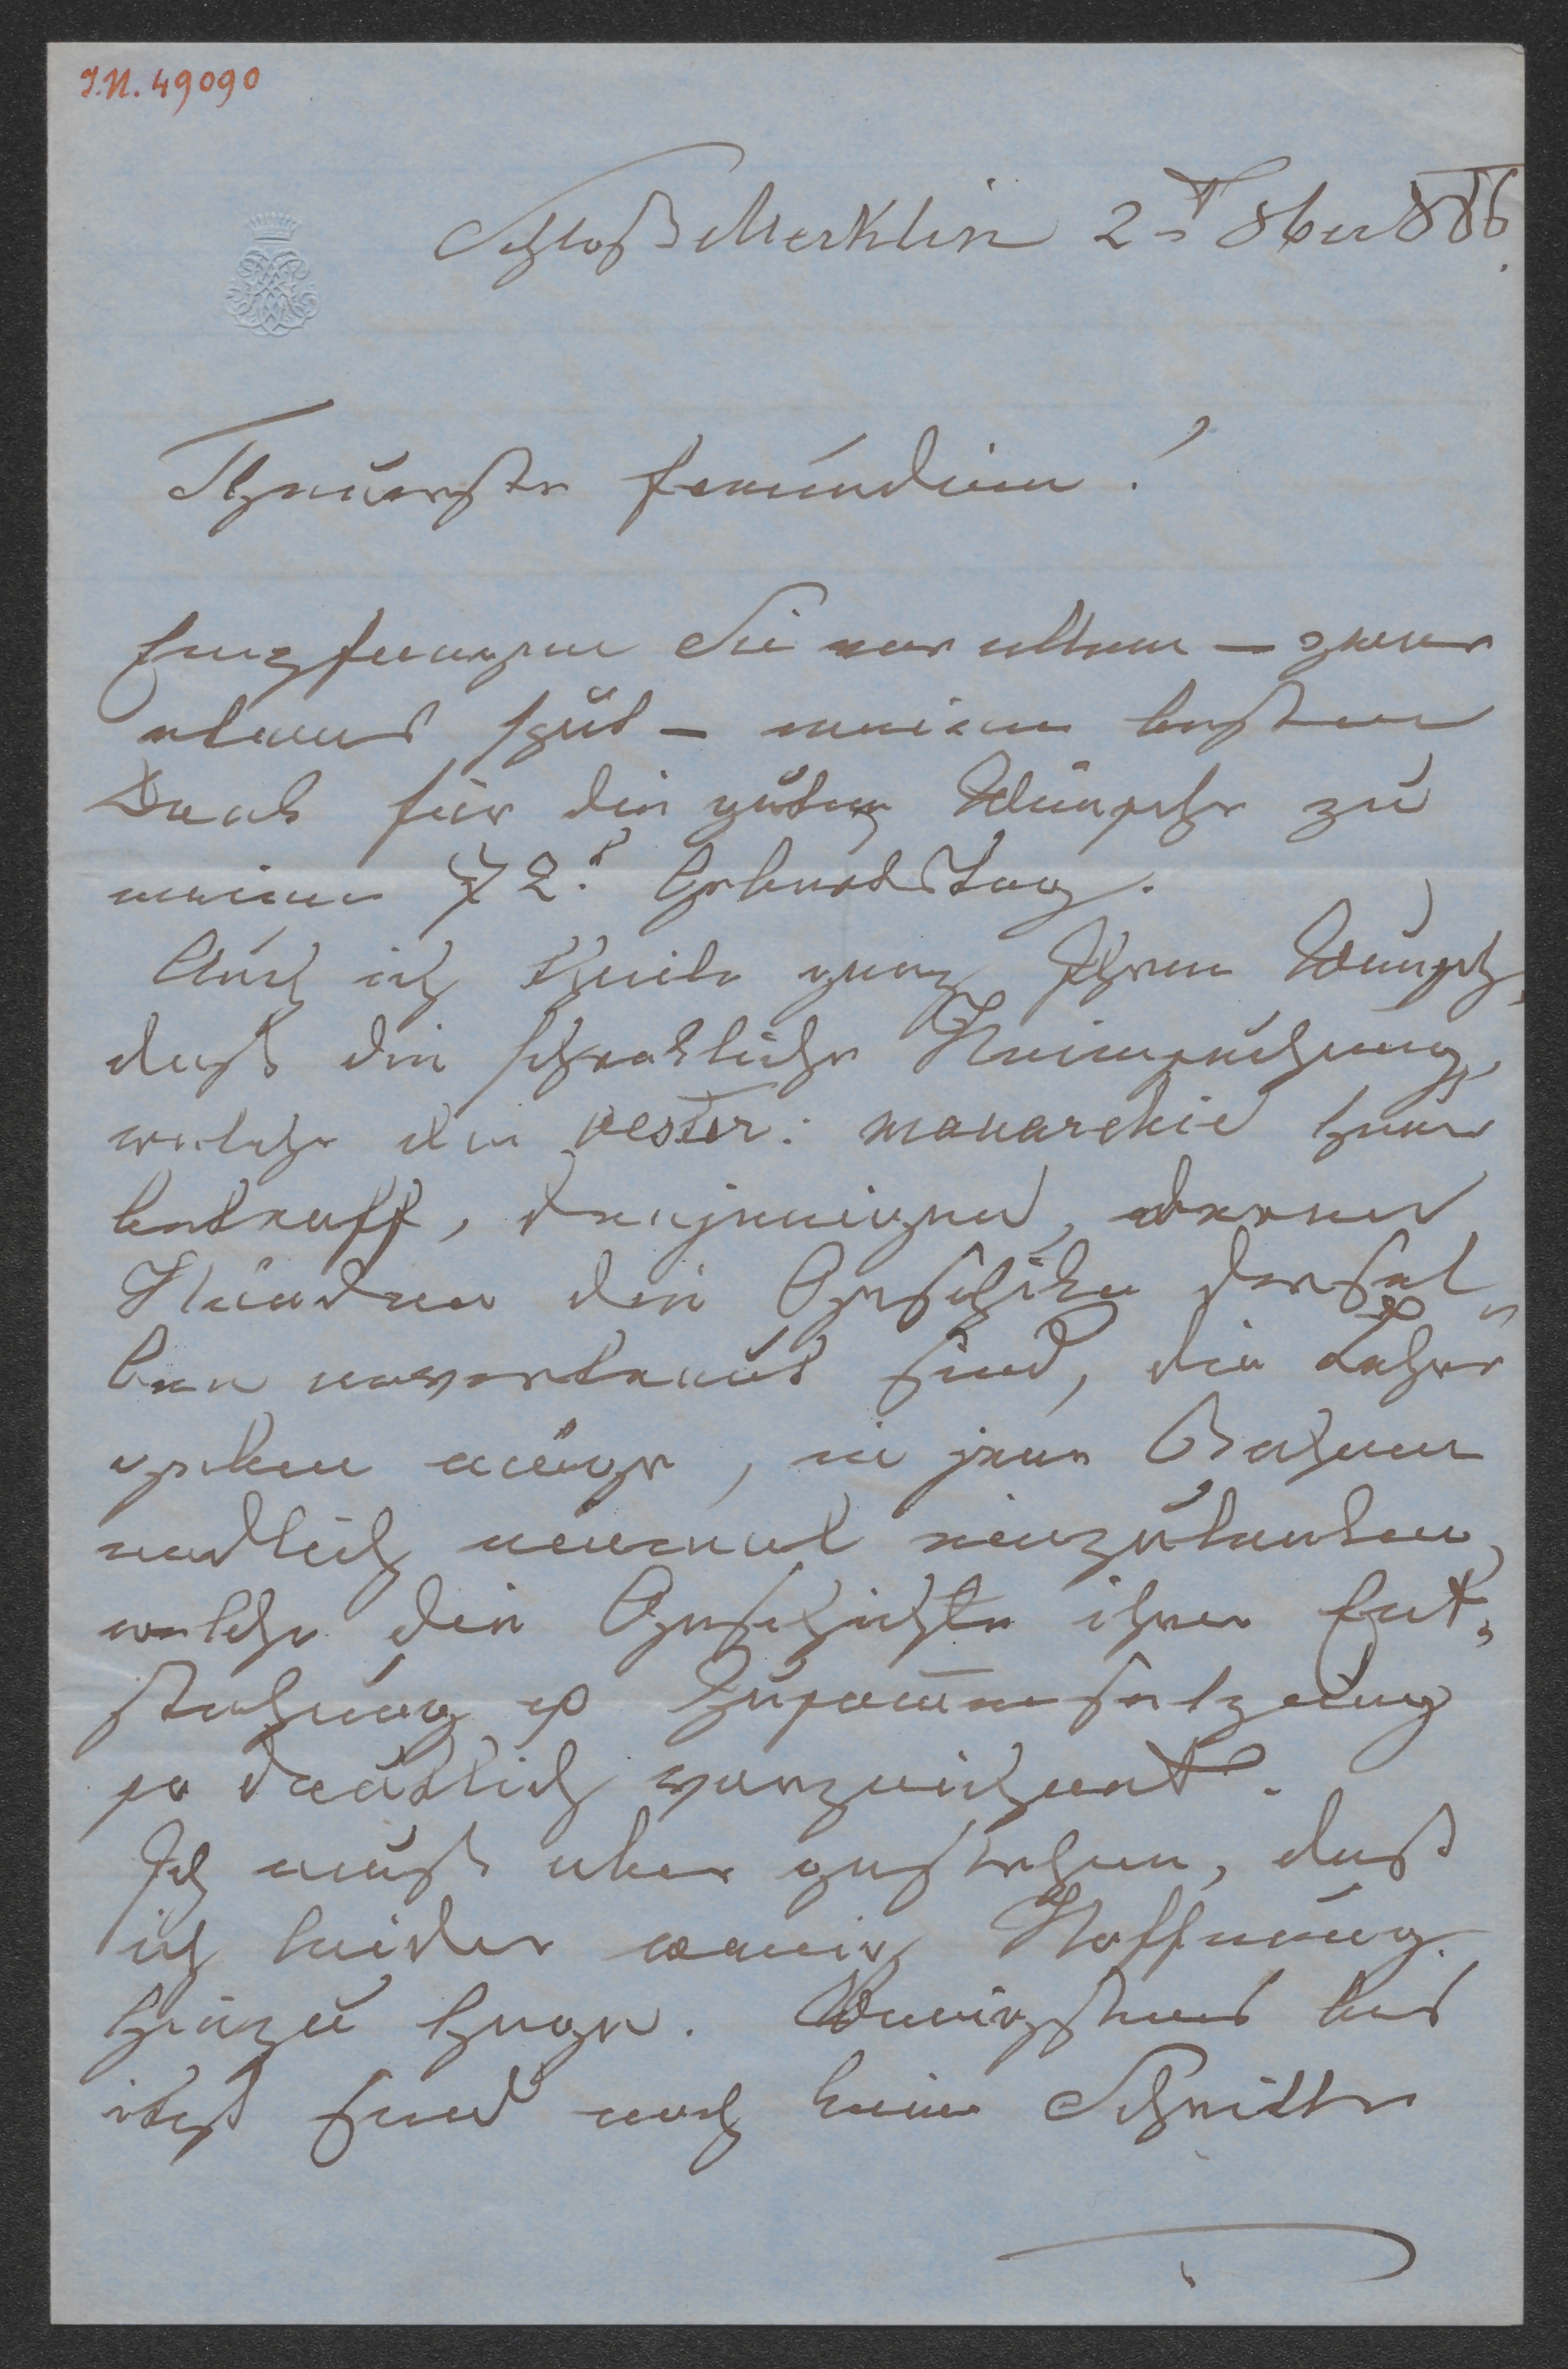 J.N. 49090
Schloß Merklin 2t 8ber 886.
Theuerste Freundinn!
Empfangen Sie vor allem – zwar
etwas spät – meinen besten
Dank für die guten Wünsche zu
meinem 72t Geburtstag.
Auch ich theile ganz Ihren Wunsch,
daß die schrekliche Heimsuchung,
welche die oester: monarchie heuer
betraff, denjenigen, deren
Händen die Geschike dersel„
ben anvertraut sind, die Lehre
geben möge, in jene Bahnen
endlich einmal einzulenken,
welche die Geschichte ihrer Ent„
stehung & Zusam̄ensetzung
so deutlich vorzeichnet.
Ich muß aber gestehen, daß
ich leider wenig Hoffnung
hinzu hege. Wenigstens bis
itzt sind noch keine Schritte